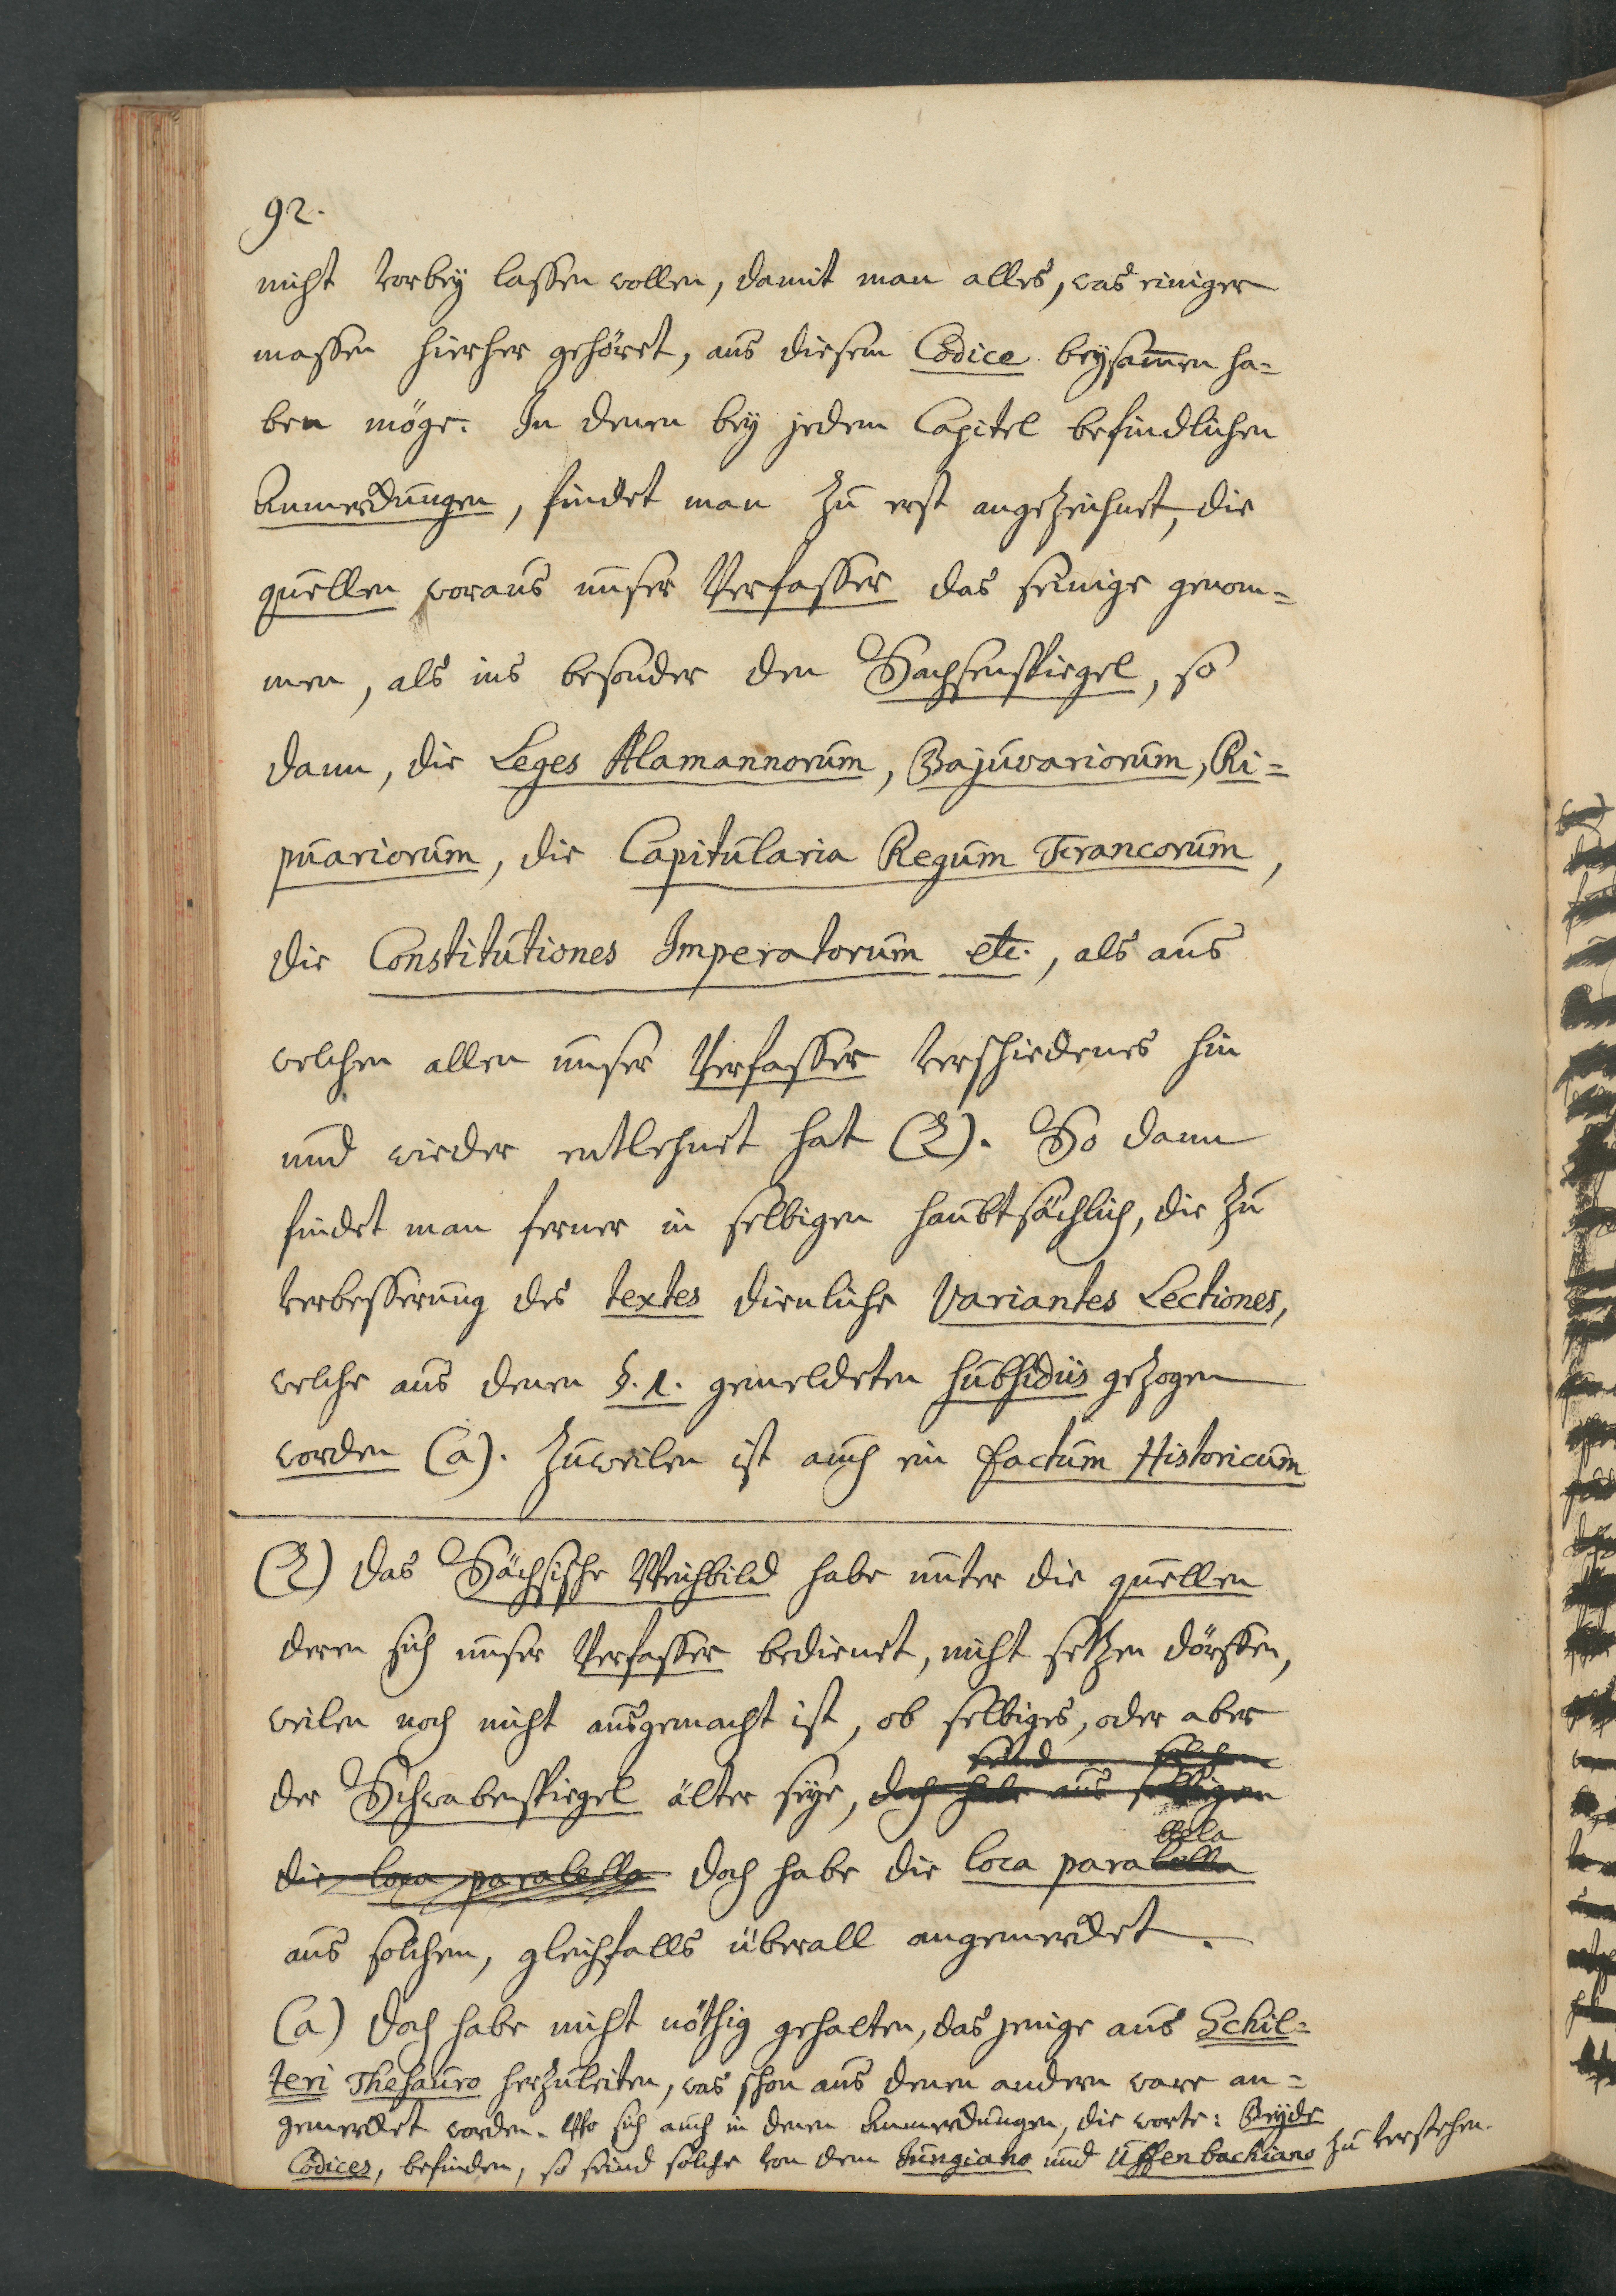 92.
nicht vorbey lassen wollen, damit man alles, was einiger
massen hierher gehöret, aus diesem Codice beysammen ha=
ben möge. In denen bey jedem Capitel befindlichen
Anmerckungen, findet man zu erst angezeichnet, die
quellen woraus unser Verfasser das seinige genom=
men, als ins besonder den Sachsenspiegel, so
dann, die Leges Alamannorum, Bajuvariorum, Ri=
puariorum, die Capitularia Regum Francorum,
die Constitutiones Imperatorum etc., als aus
welchen allen unser Verfasser verschiedenes hin
und wieder entlehnet hat (Z). So dann
findet man ferner in selbigen haubtsächlich, die zu
verbesserung des textes dienliche Variantes Lectiones,
welche aus denen §.1. gemeldeten subsidiis gezogen
worden (a). Zuweilen ist auch ein factum Historicum
(Z) das Sächsische Weichbild habe unter die quellen
deren sich unser Verfasser bedienet, nicht setzen dörffen,
weilen noch nicht ausgemacht ist, ob selbiges, oder aber
der Schwabenspiegel älter seye, doch habe aus selbigen
die loca parabella doch habe die loca parabella
aus solchem, gleichfalls überall angemercket.
(a) doch habe nicht nöthig gehalten, das jenige aus Schil=
teri Thesauro herzuleiten, was schon aus denen andern ware an=
gemercket worden. Wo sich auch in denen Anmerckungen, die worte: Beyde
Codices, befinden, so seind solche von dem Jungiano und Uffenbachiano zu verstehen.